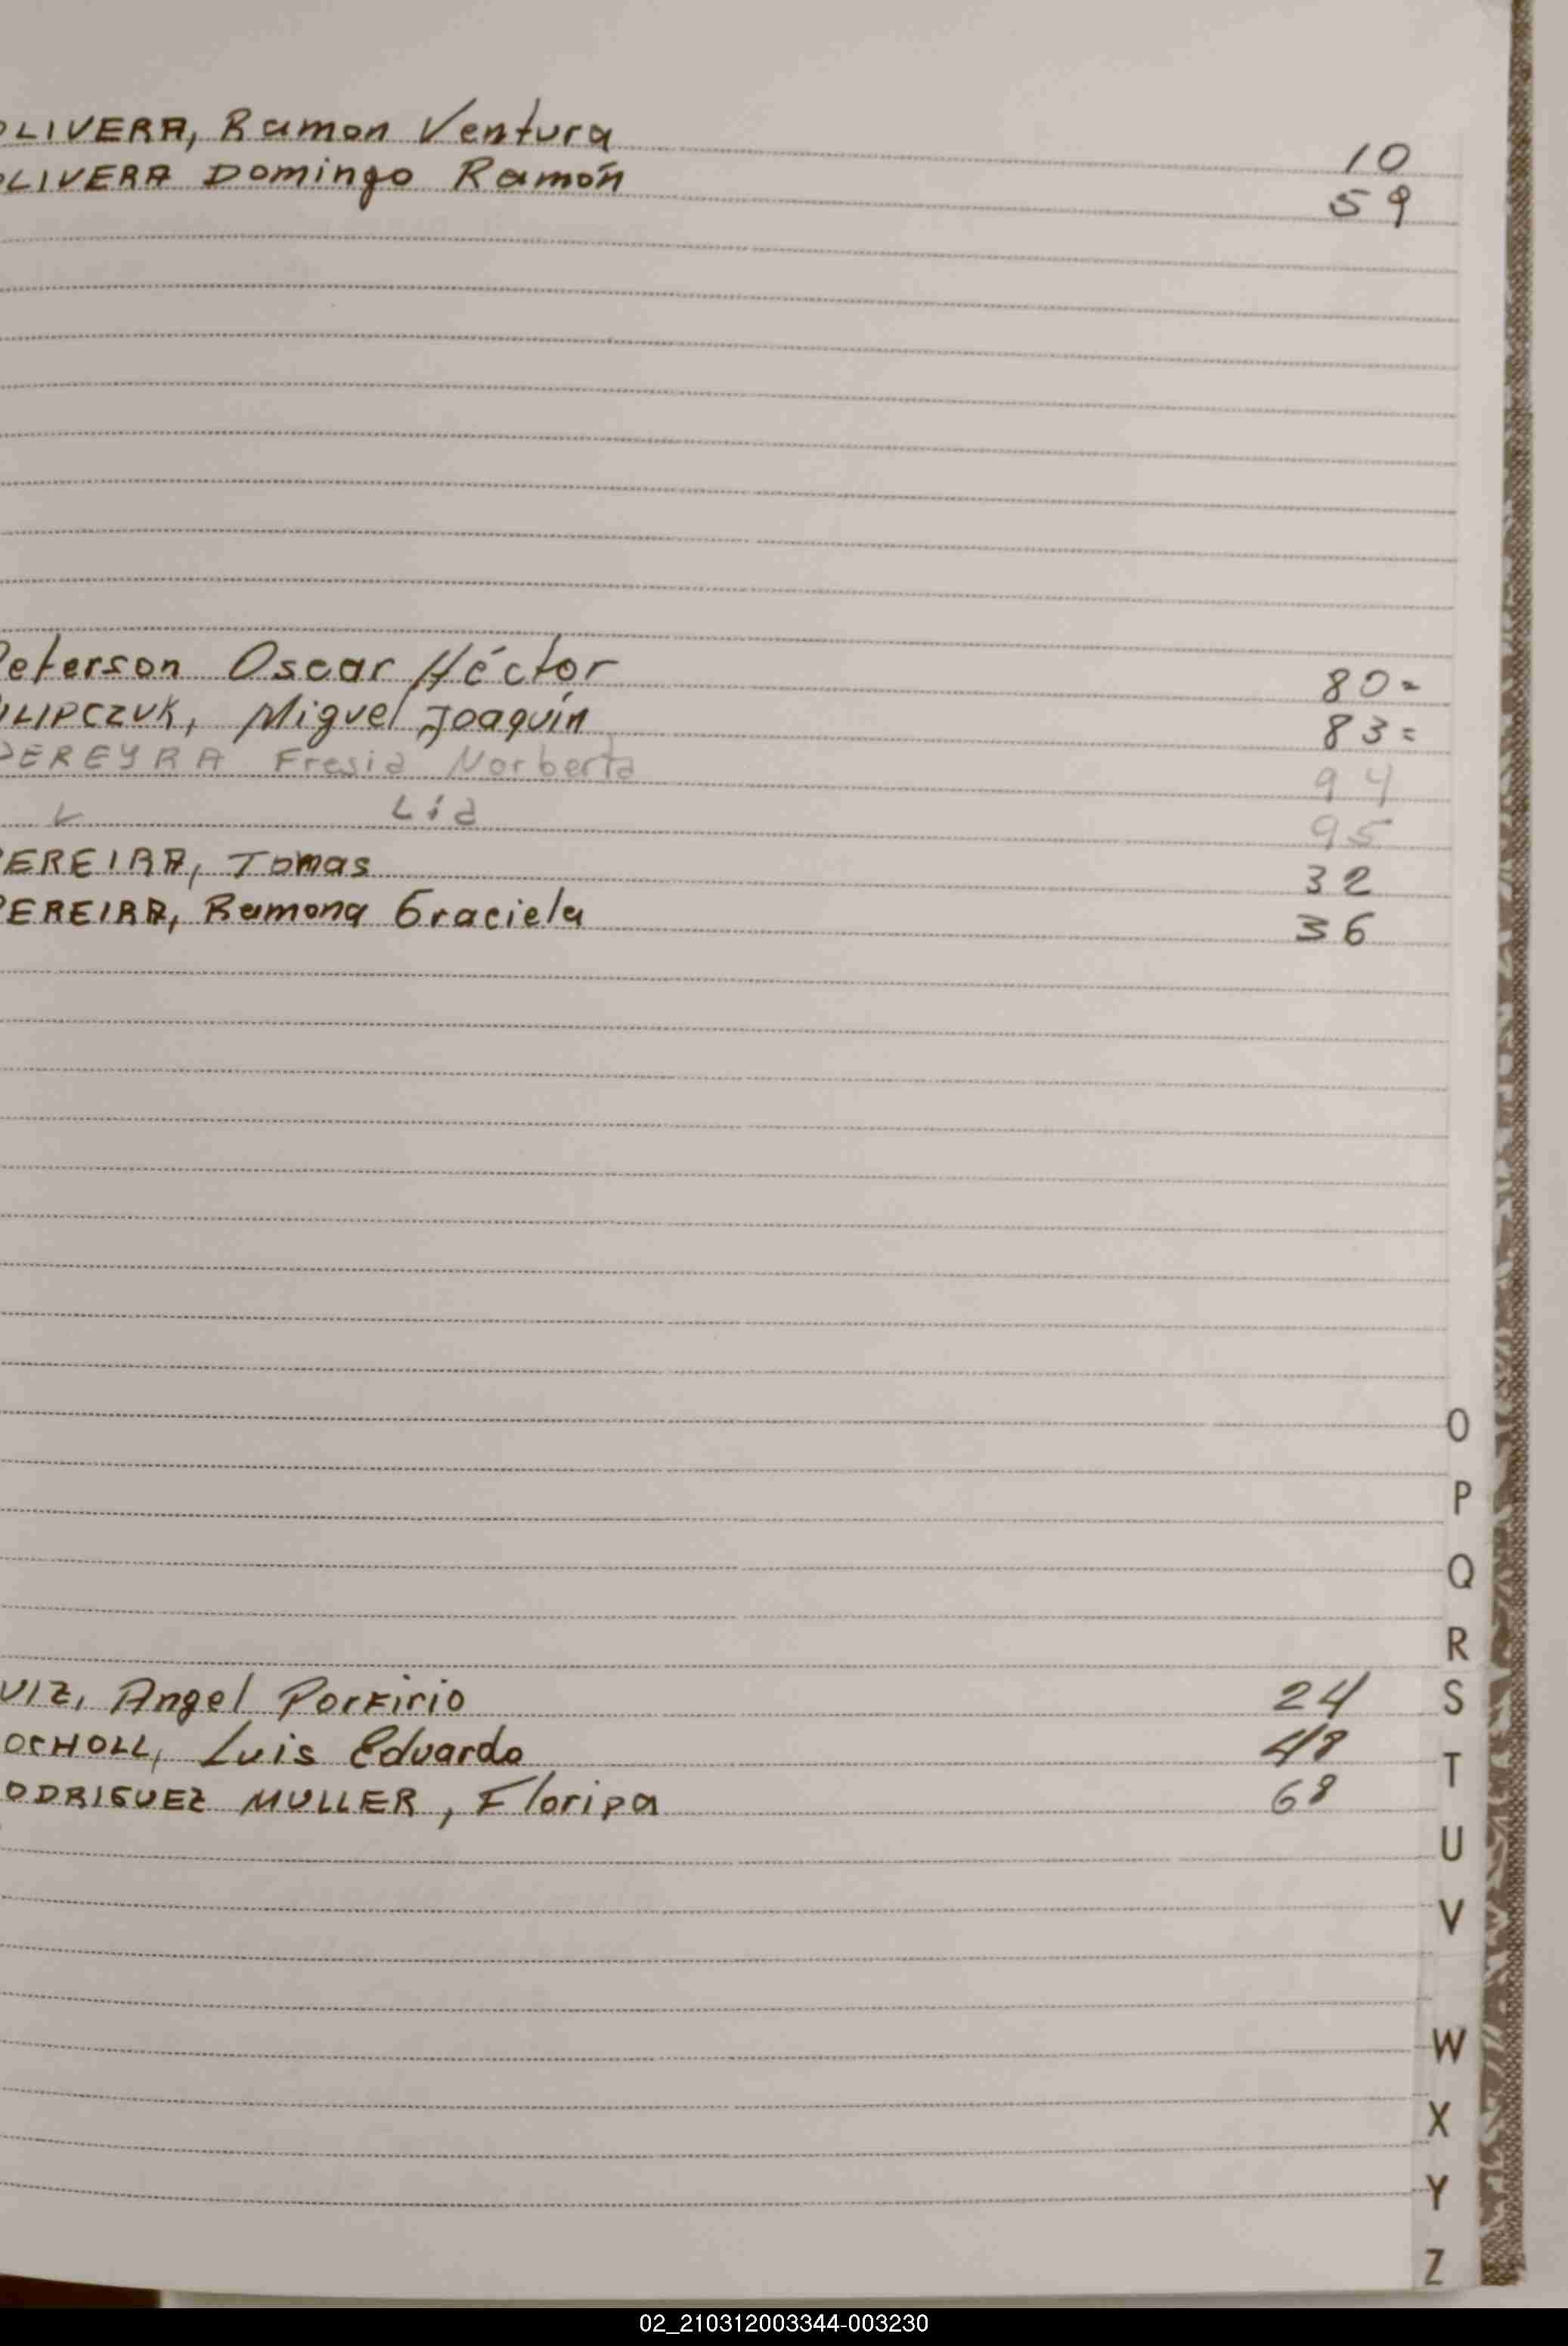 OLIVERA, Ramon Ventura 10
OLIVERA Domingo Ramón 59
Peterson Oscar Héctor 80=
PILIPCZUK, Miguel Joaquín 83=
PEREYRA Fresia Norberta 94
Lia 95
PEREIRA, Tomas 32
PEREIRA, Ramona Graciela 36
O
P
Q
R
UIZ, Angel Porfirio 24
S
OCHOLL, Luis Eduardo 48
T
ODRIGUEZ MULLER, Floripa 68
U
V
W
X
Y
Z
02_210312003344-003230